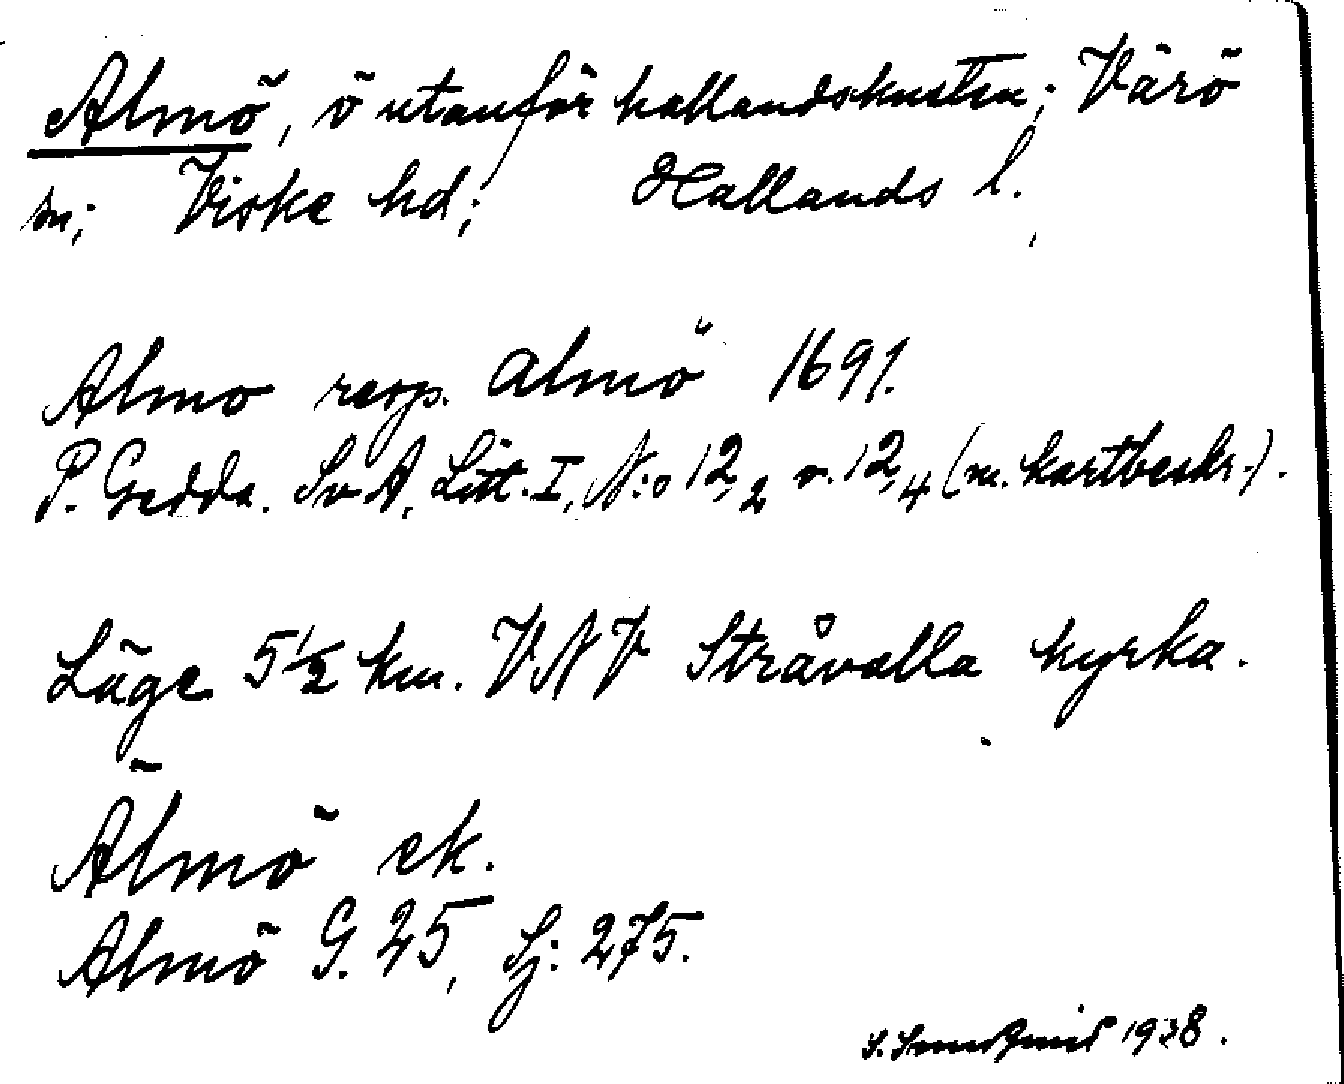 Almö, ö utanför hallandskusten; Värö
sn; Viske hd; Hallands l.
Almo resp. Almö 1691.
P. Gedda. Sv A, Litt. I, N:o 12,2 o. 12,4 (m. kartbeskr.).
Läge 5 1/2 km. VNV Stråvalla kyrka.
Älmö ek.
Almö G. 25, Sj: 275.
1938.